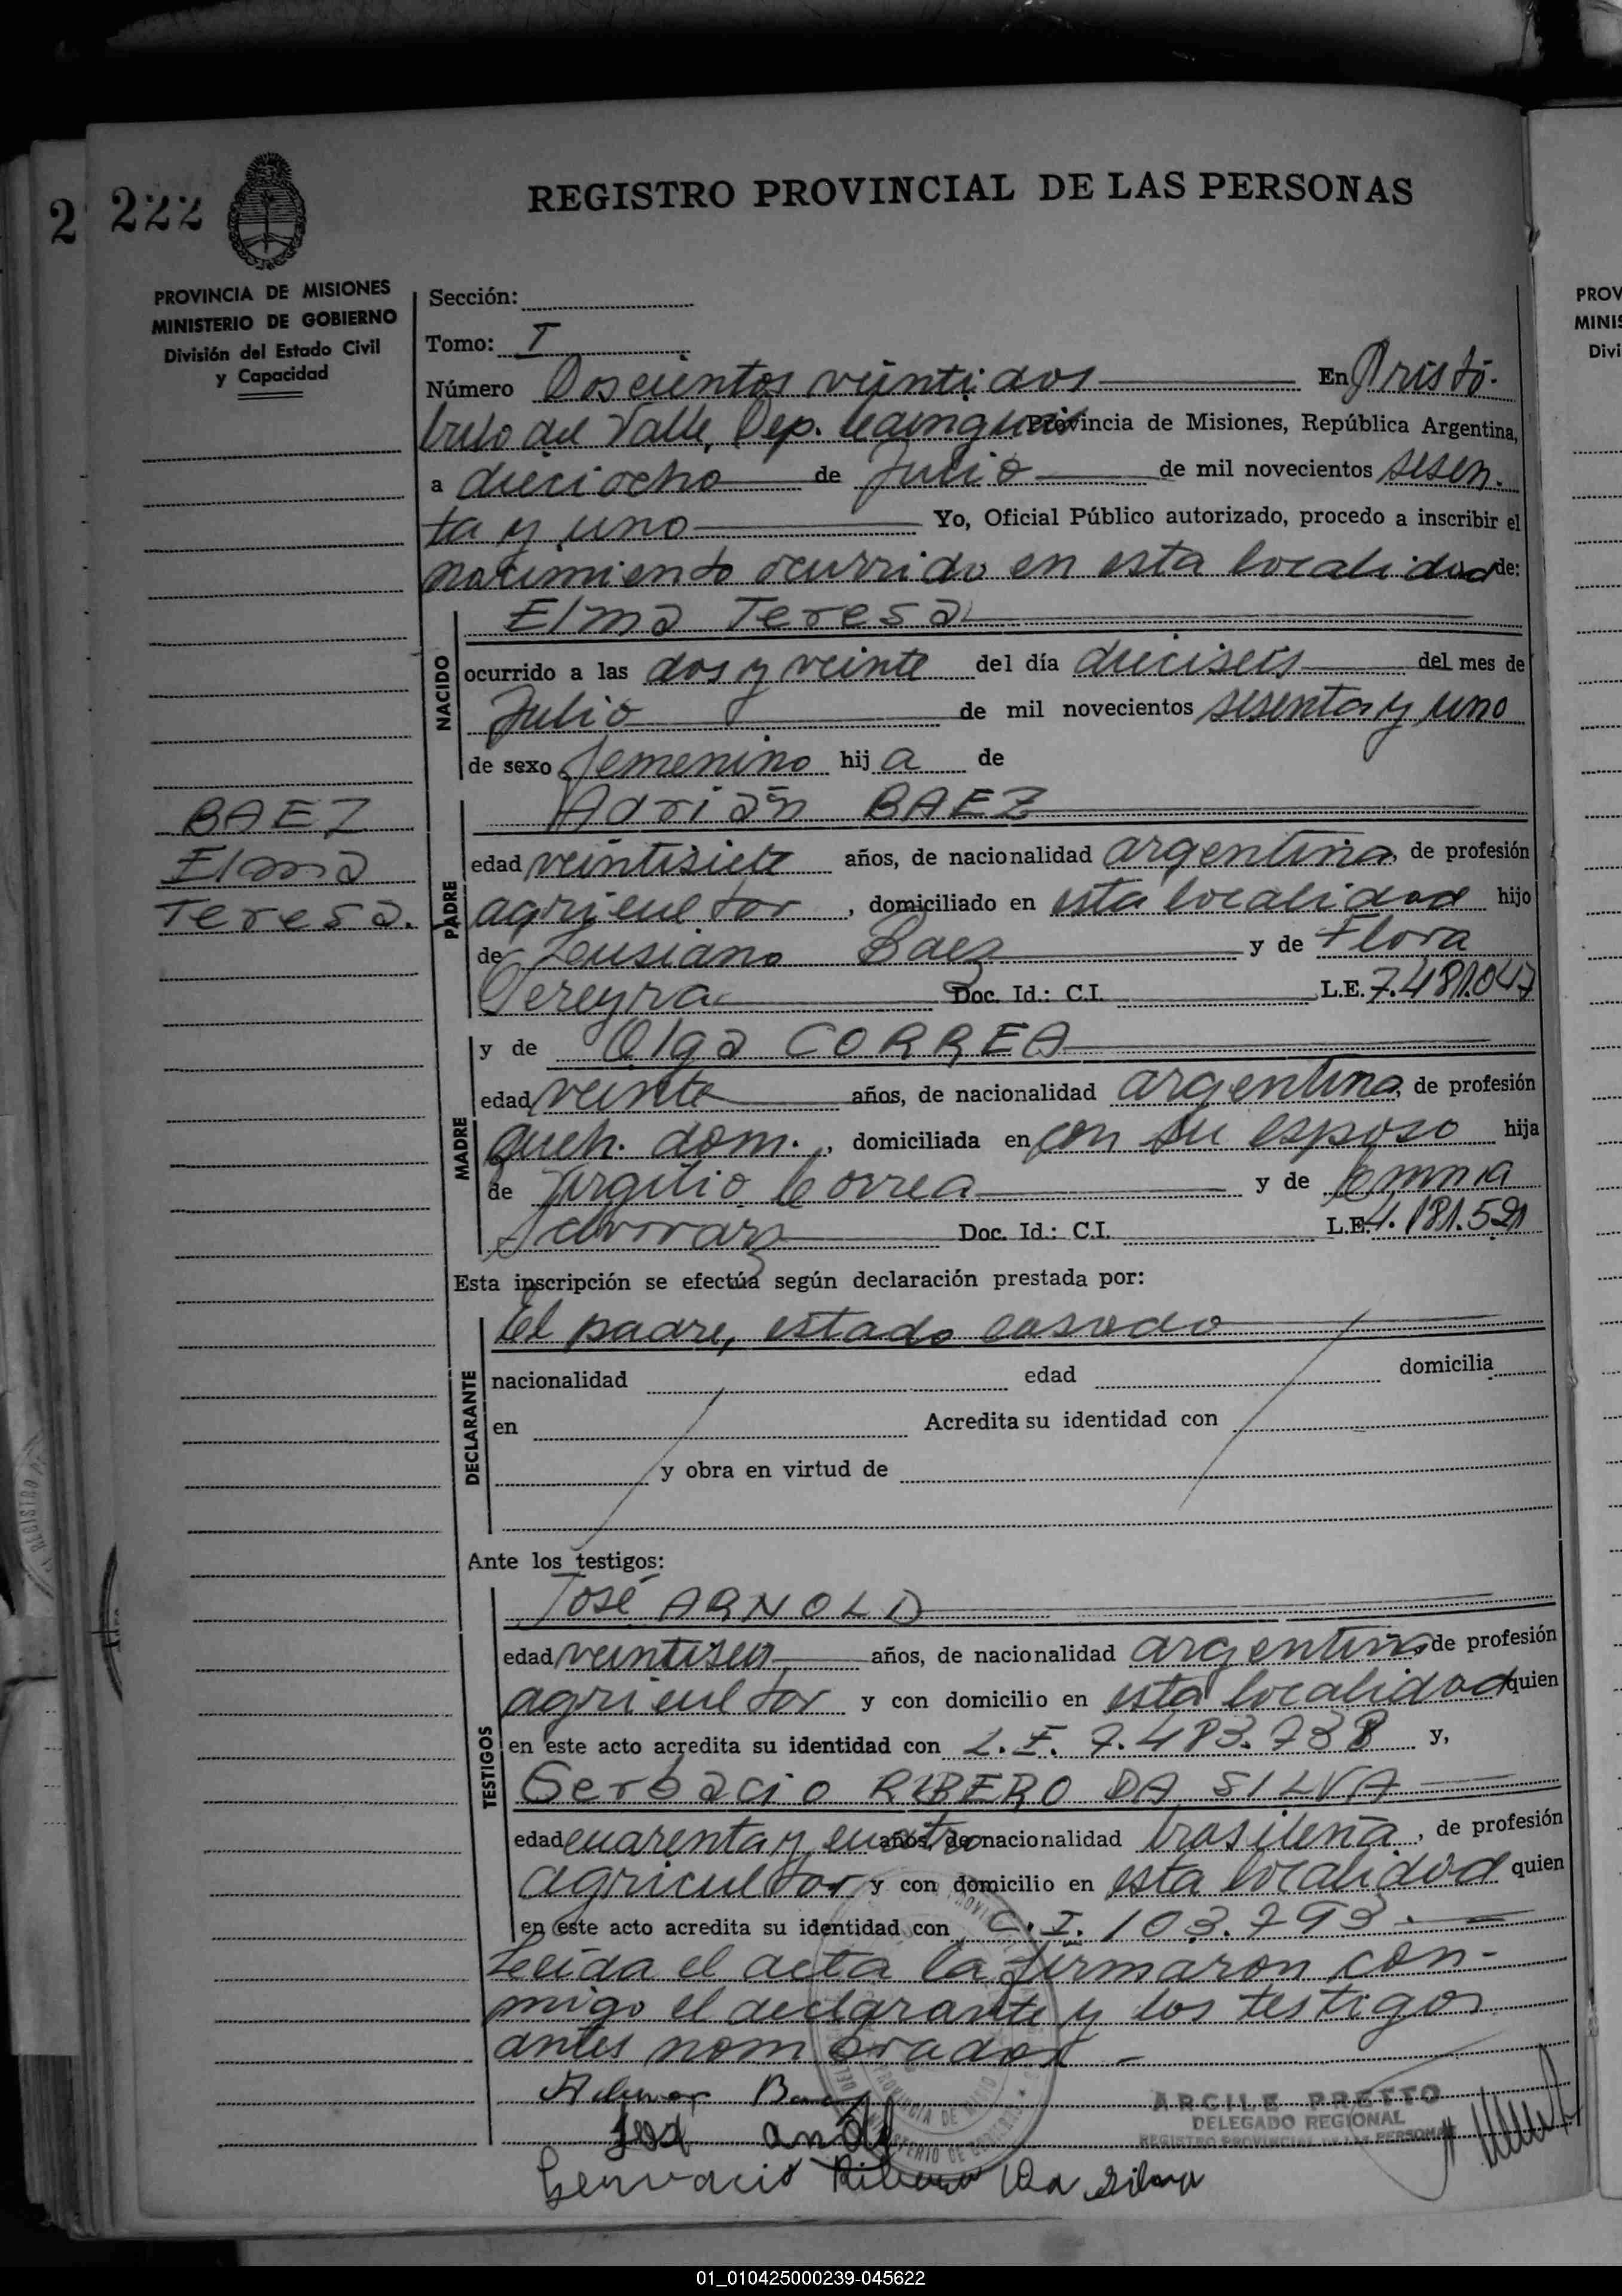 2 222
REGISTRO PROVINCIAL DE LAS PERSONAS
PROVINCIA DE MISIONES
MINISTERIO DE GOBIERNO
División del Estado Civil
y Capacidad
Sección:
Tomo: I
Número Doscientos veintidos En Aristó-
bulo del Valle, Dep. Cainguás Provincia de Misiones, República Argentina,
a dieciocho de Julio de mil novecientos sesen-
ta y uno Yo, Oficial Público autorizado, procedo a inscribir el
nacimiento ocurrido en esta localidad de:
NACIDO
Elma Teresa
ocurrido a las dos y veinte del día dieciseis del mes de
Julio de mil novecientos sesenta y uno
de sexo femenino hij a de
BAEZ
Elma
Teresa.
PADRE
Adrián BAEZ
edad veintisiete años, de nacionalidad argentina, de profesión
agricultor, domiciliado en esta localidad hijo
de Lusiano Baez y de Flora
Pereyra Doc. Id.: C.I. L.E. 7.481.047
MADRE
y de Olga CORREA
edad veinte años, de nacionalidad argentina, de profesión
queh. dom., domiciliada en con su esposo hija
de Virgilio Correa y de
Doc. Id.: C.I. L.E. 4.181.521
Esta inscripción se efectúa según declaración prestada por:
DECLARANTE
El padre, estado casado
nacionalidad edad domicilia
en Acredita su identidad con
y obra en virtud de
Ante los testigos:
TESTIGOS
José ARNOLD
edad veintiseis años, de nacionalidad argentina de profesión
agricultor y con domicilio en esta localidad quien
en este acto acredita su identidad con L.E. 7.483.738 y,
Gerbacio RIBERO DA SILVA
edad cuarenta y cuatro años, de nacionalidad brasileña, de profesión
agricultor y con domicilio en esta localidad quien
en este acto acredita su identidad con C.I. 103.793.
Leída el acta la firmaron con-
migo el declarante y los testigos
antes nombrados.-
Baez
ARGILE PRETTO
DELEGADO REGIONAL
REGISTRO PROVINCIAL DE LAS PERSONAS
Gervacio Ribero Da Silva
PROV
MINIS
Divi
01_010425000239-045622